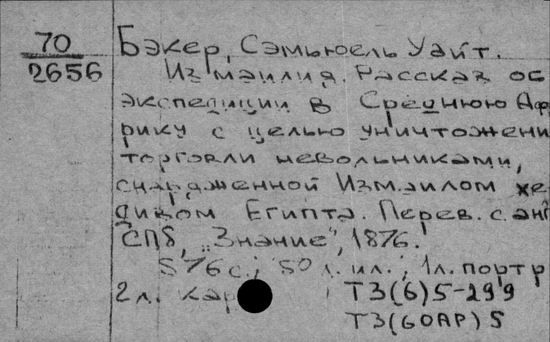 70
2656
Бэкер, Сэмьюель Уайт.
Измаилия. Рассказ об
экспедиции в Среднюю Аф
рику с целью уничтожени
торговли невольниками,
снаряженной Измаилом хе
дивом Египта. Перев. с анг
СПб, „Знание", 1876.
576 с.; 50 л. ил.; 1л. портр
2 л. кар
Т3(6)5-299
Т3(6ОАР)5